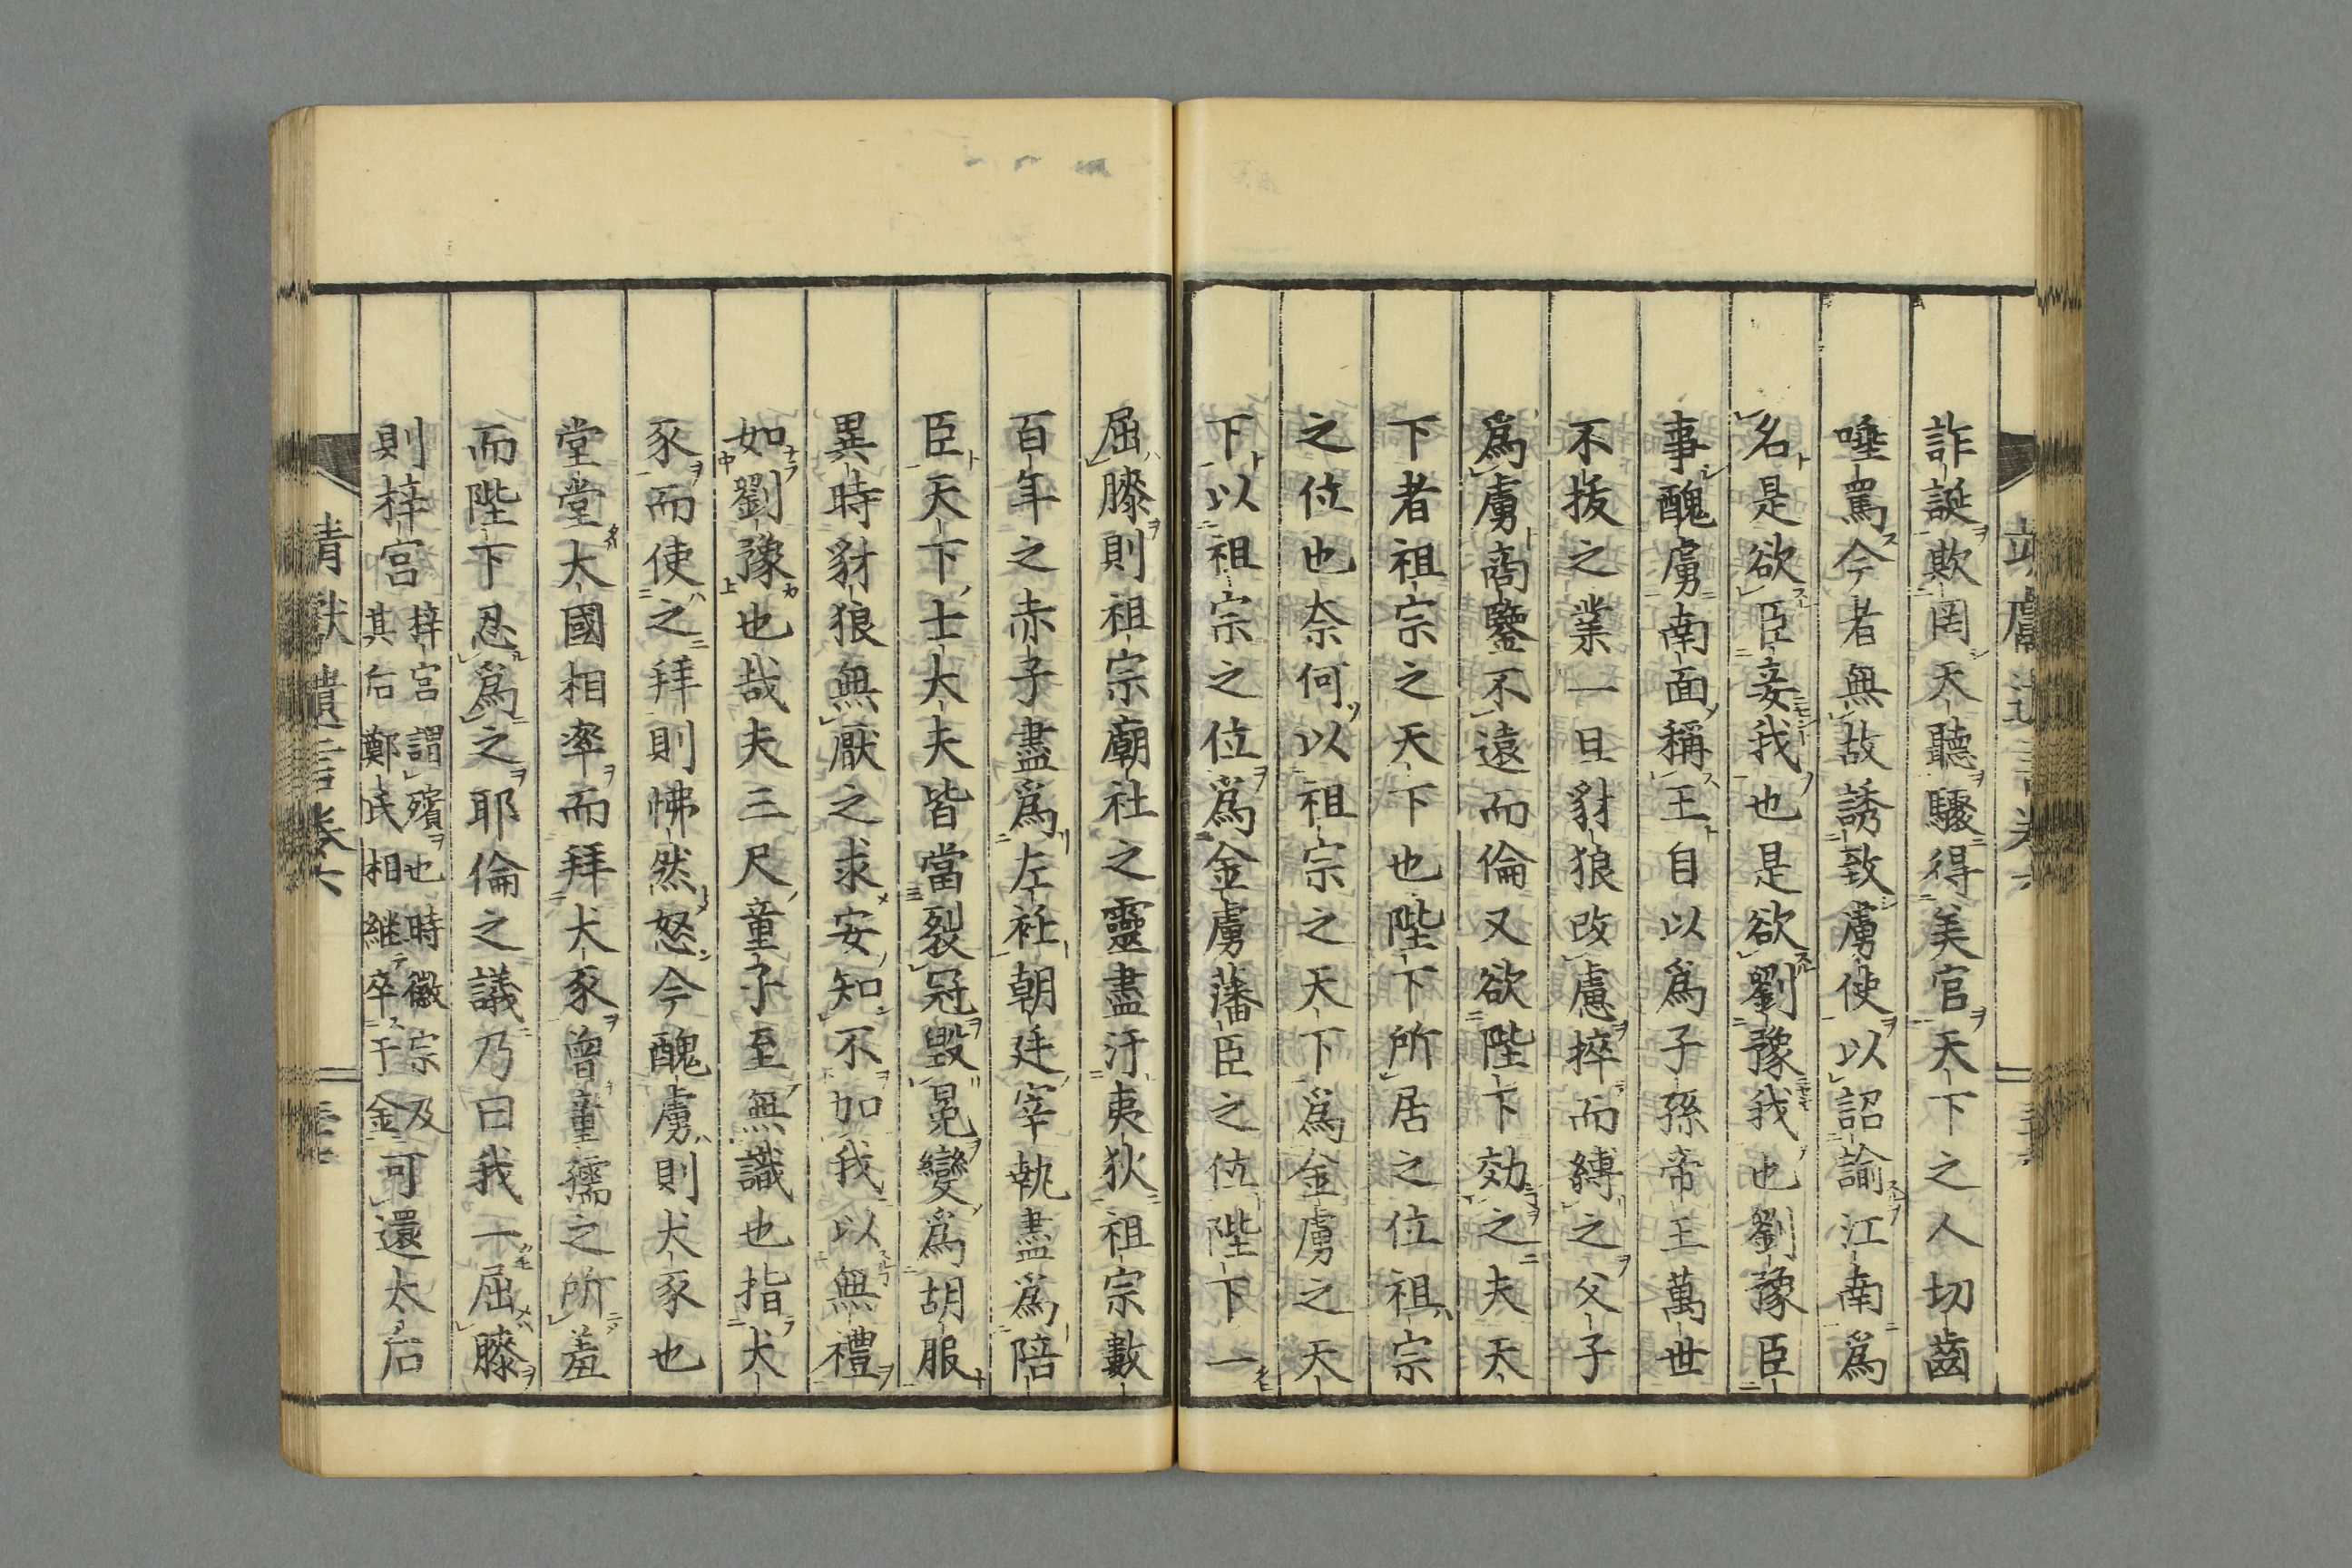 詐誕欺罔天聽驟得美官天下之人切齒
唾罵今者無故誘致虜使以詔諭江南爲
名是欲臣妾我也是欲劉豫我也劉豫臣
事醜虜南面稱王自以爲子孫帝王萬世
不拔之業一旦豺狼改慮捽而縛之父子
爲虜商鑒不遠而倫又欲陛下効之夫天
下者祖宗之天下也陛下所居之位祖宗
之位也奈何以祖宗之天下爲金虜之天
下以祖宗之位爲金虜藩臣之位陛下一
屈膝則祖宗廟社之靈盡汙夷狄祖宗數
百年之赤子盡爲左衽朝廷宰執盡爲陪
臣天下士大夫皆當裂冠毀冕變爲胡服
異時豺狼無厭之求安知不加我以無禮
如劉豫也哉夫三尺童子至無識也指犬
豕而使之拜則怫然怒今醜虜則犬豕也
堂堂大國相率而拜犬豕曾童孺之所羞
而陛下忍爲之耶倫之議乃曰我一屈膝
則梓宮梓宮謂殯也時徽宗及其后鄭氏相継卒于金可還太后
靖獻遺言卷六